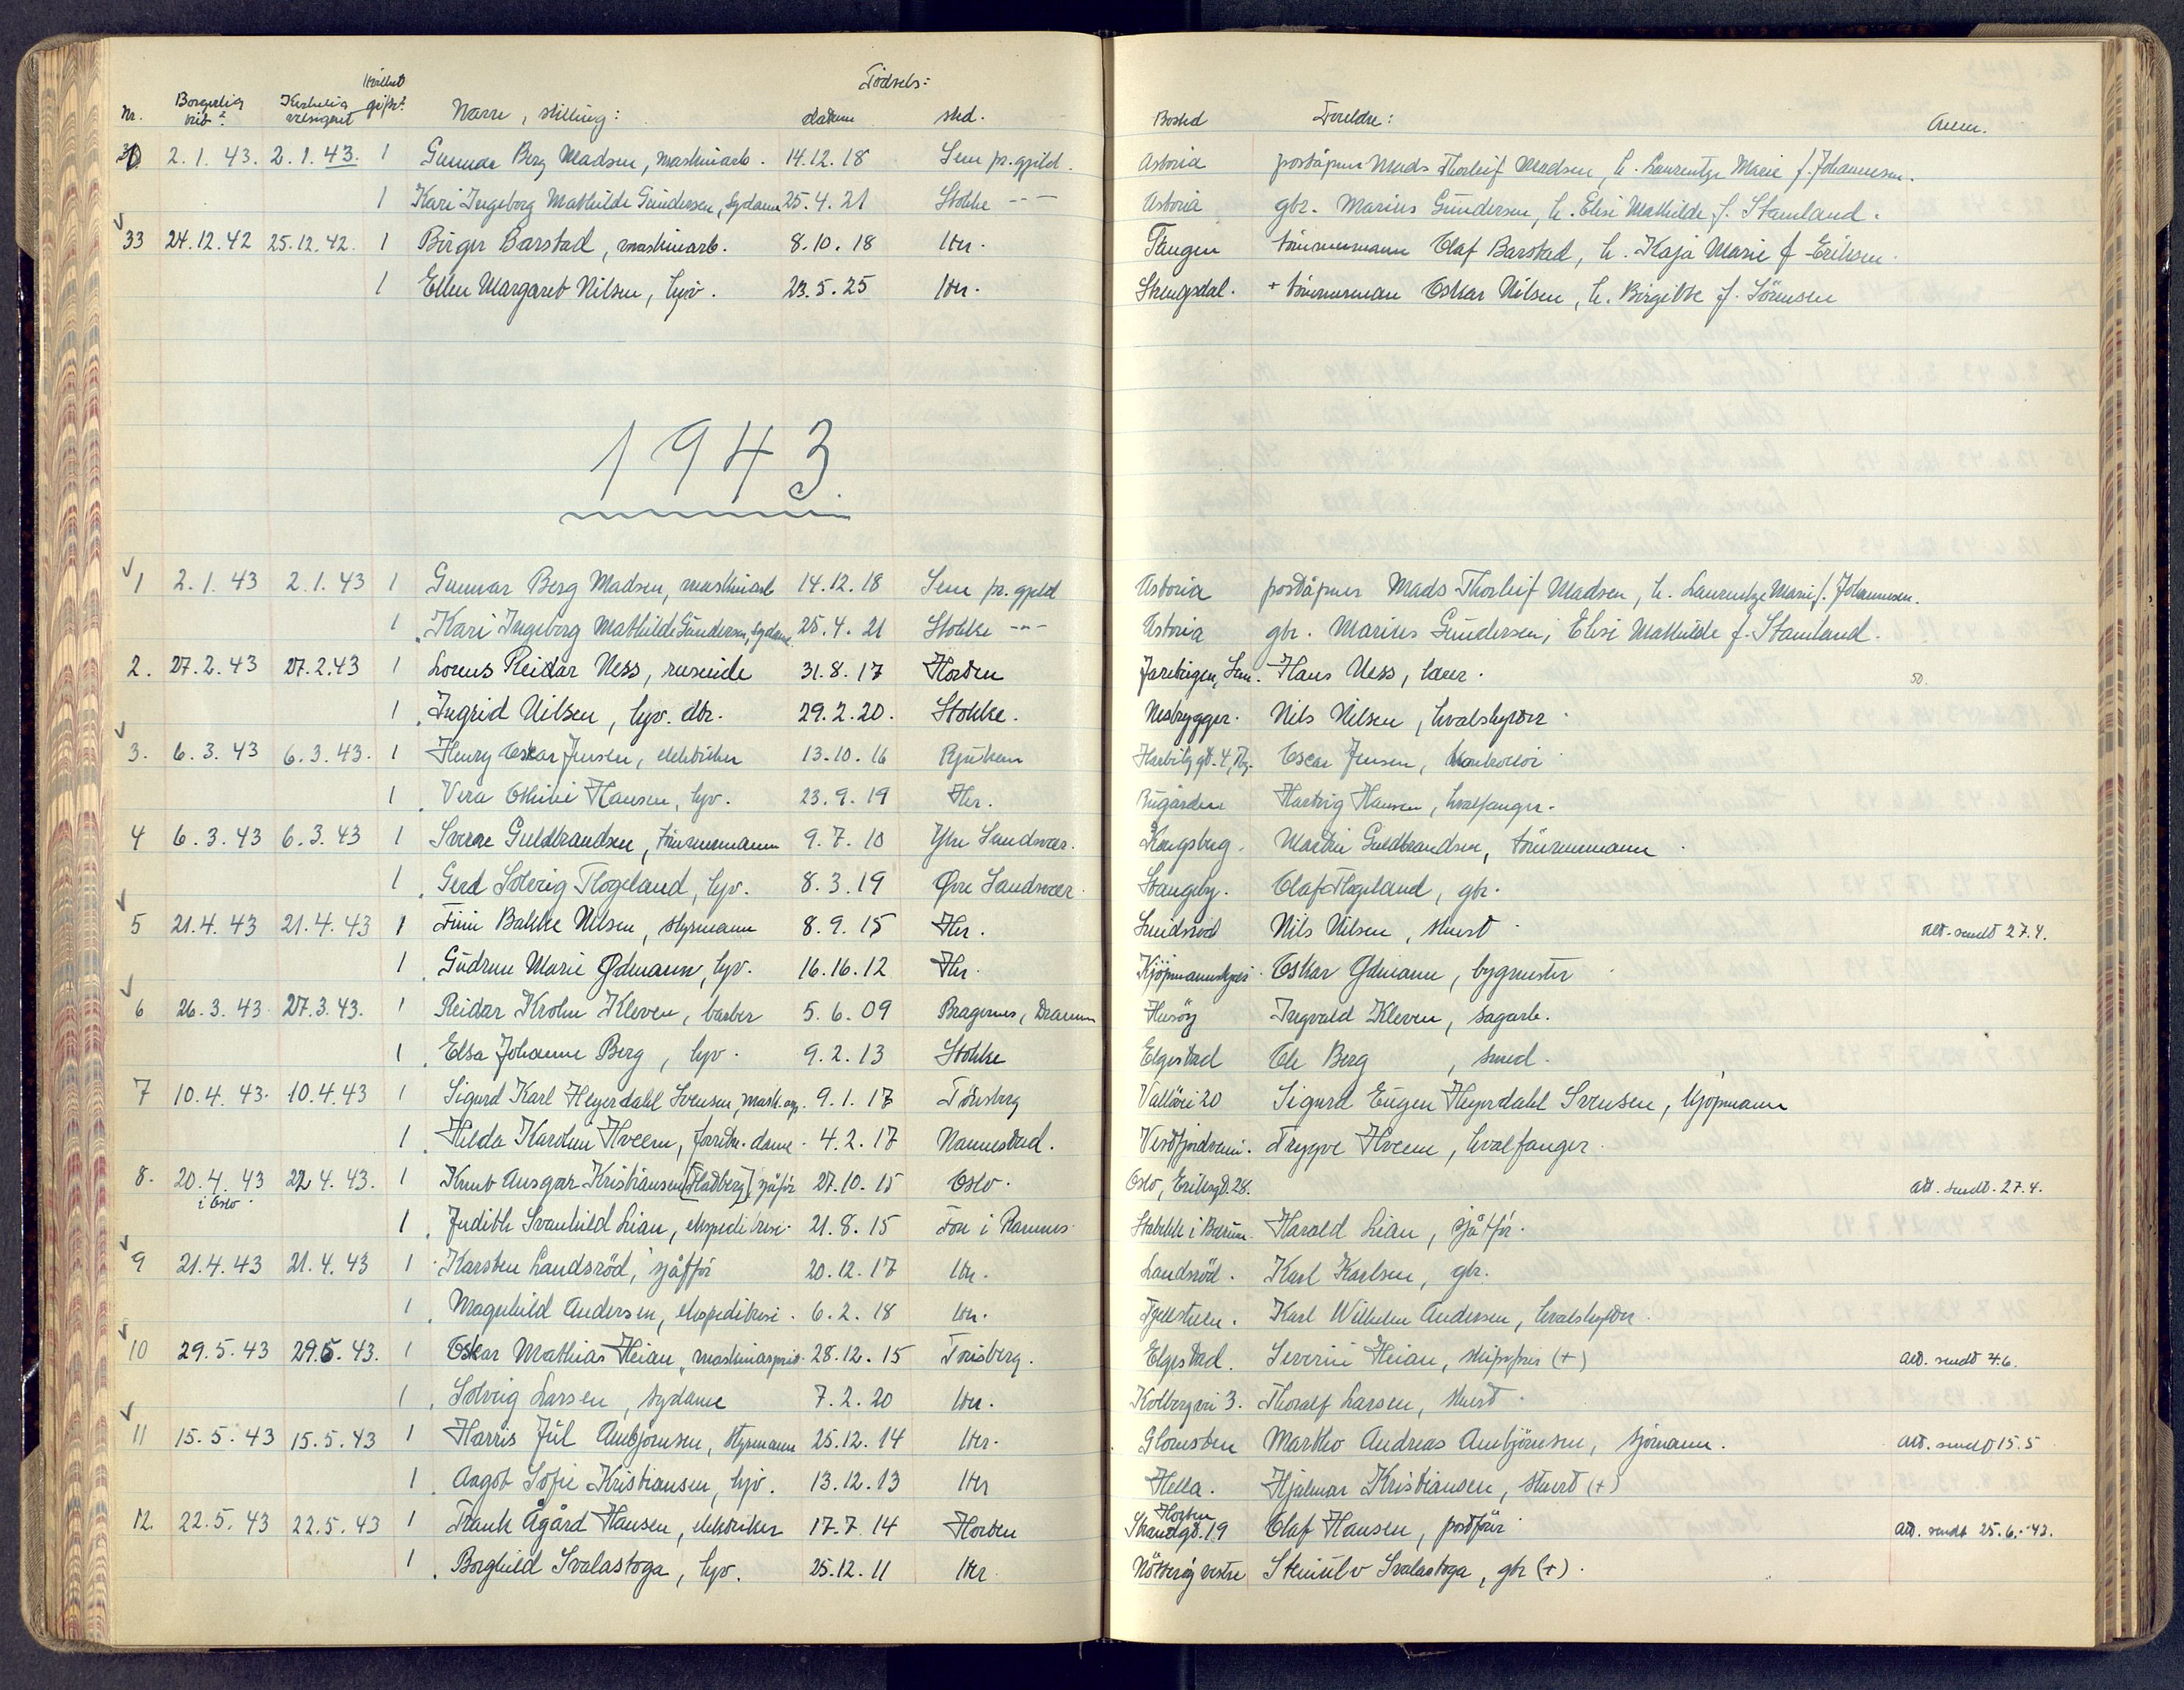 Fødsels:
Nr. Borgerlig Kirkelig velsignet gift Navn, stilling: datum sted. Bosted Foreldre: Anm.
2.1.43. 2.1.43. 1 Gunnar Berg Madsen, maskinarb. 14.12.18 Sem pr.gjeld. Astoria poståpner Mads Thorleif Madsen, h. Laurentze Marie f. Johannesen.
1 Kari Ingeborg Mathilde Gundersen, sydame 25.4.21 Stokke -"- Astoria gbr. Marius Gundersen, h. Elisi Mathilde f. Stamland.
33 24.12.42 25.12.42. 1 Birger Barstad, maskinarb. 8.10.18 Htr. Tangen tömmermann Olaf Barstad, h. Kaja Marie f. Eriksen.
1 Ellen Margaret Nilsen, hjv. 23.5.25 Htr. Strengsdal. + tömmerman Oskar Nilsen, h. Birgitte f. Sörensen
1943.
1 2.1.43 2.1.43 1 Gunnar Berg Madsen, maskinarb 14.12.18 Sem pr.gjeld Astoria poståpner Mads Thorleif Madsen, h. Laurentze Marie f. Johannesen.
1 Kari Ingeborg Mathilde Gundersen, sydame 25.4.21 Stokke -"- Astoria gbr. Marius Gundersen, Elisi Mathilde f. Stamland.
2. 27.2.43 27.2.43 1 Lorens Reidar Ness, 31.8.17 Horten Jareteigen, Sem. Hans Ness, lærer.
1 Ingrid Nilsen, hjv. dtr. 29.2.20. Stokke. Nesbrygger. Nils Nilsen, hvalskytter.
3. 6.3.43 6.3.43. 1 Henry Oskar Jensen, elektriker 13.10.16 Rjukan gt. 4, Tbg. Oscar Jensen,
1 Vera Othilie Hansen, hjv. 23.9.19 Htr. Bugården Hartvig Hansen, hvalfanger.
4 6.3.43 6.3.43 1 Sverre Guldbrandsen, tömmermann 9.7.10 Ytre Sandsvær. Kongsberg. Martin Guldbrandsen, tömmermann.
1 Gerd Solveig Flogeland, hjv. 8.3.19 Øvre Sandsvær. Stangeby. Olaf Flogeland, gbr.
5 21.4.43 21.4.43 1 Finn Bakke Nilsen, styrmann 8.9.15 Htr. Smidsröd Nils Nilsen, stuert. Att. sendt 27.4.
1 Gudrun Marie Ødmann, hjv. 16.16.12 Htr. Kjöpmannskjær. Oskar Ødmann, bygmester.
6 26.3.43 27.3.43. 1 Reidar Krohn Kleven, barber 5.6.09 Bragernes, Drammen Husöy Ingvald Kleven, sagarb.
1 Elsa Johanne Berg, hjv. 9.2.13 Stokke Elgestad Ole Berg, smed.
7 10.4.43. 10.4.43 1 Sigurd Karl Heyerdahl Svensen, mask. 9.1.17 Tönsberg Vallövei 20 Sigurd Eugen Heyerdahl Svensen, kjöpmann
1 Hilda Karoline Hveem, forretn. dame. 4.2.17 Nannestad. Vestfjordveien. Trygve Hveem, hvalfanger.
8. 20.4.43 22.4.43. 1 Knut Ansgar Kristiansen [Flatberg], sjåför 27.10.15 Oslo. Oslo, Eriksgt. 28. att. sendt. 27.4.
i Oslo.
1 Judith Svanhild Lian, ekspeditrise. 21.8.15 Fon i Ramnes. Stabekk i Bærum. Harald Lian, sjåfför.
9 21.4.43 21.4.43 1 Karsten Landsröd, sjåfför 20.12.17 Htr. Landsröd. Karl Karlsen, gbr.
1 Magnhild Andersen, ekspeditrise. 6.2.18 Htr. Karl Wilhelm Andersen, hvalskytter.
10 29.5.43 29.5.43. 1 Oskar Mathias Heian, 28.12.15 Tönsberg. Elgestad. Severin Heian, (+) att. sendt 4.6.
1 Solveig Larsen, sydame 7.2.20 Htr. Kolbergvei 3. Thoralf Larsen, stuert.
11 15.5.43 15.5.43 1 Harris Jul Ambjörnsen, styrmann 25.12.14 Htr. Glomsten Martho Andreas Ambjörnsen, sjömann. att. sendt 15.5
1 Aagot Sofie Kristiansen, hjv. 13.12.13 Htr Hella. Hjalmar Kristiansen, stuert (+)
12. 22.5.43 22.5.43 1 Frank Ågård Hansen, elektriker 17.7.14 Horten Horten Strandgt. 19 Olaf Hansen, postförer att. sendt 25.6.-43.
1 Borghild Svalastoga, hjv. 25.12.11 Htr. Nötteröy vestre Steinulv Svalastoga, gbr (+).